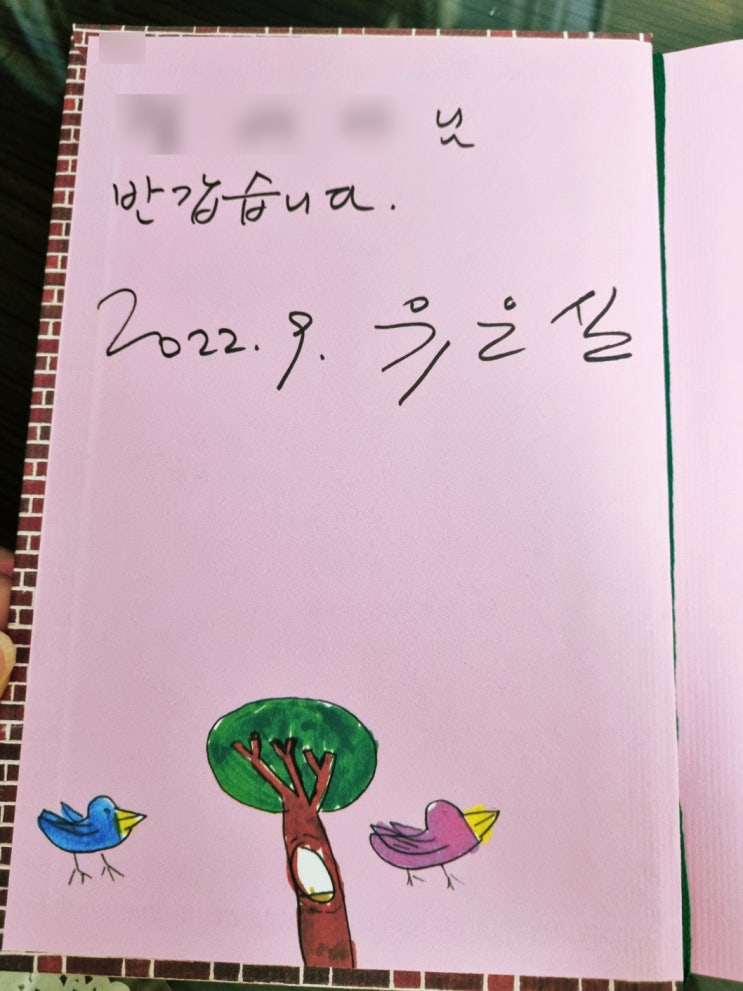 님
반갑습니다.
2022. 9. 유은실